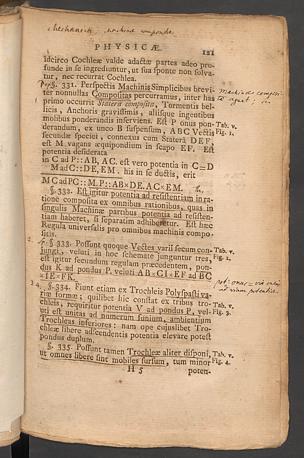 Mechanica machina composita
PHYSICÆ. 121
idcirco Cochleæ valde adactæ partes adeo pro-
funde in se ingrediuntur, ut sua sponte non solva-
tur, nec recurrat Cochlea.
§. 331. Perspectis Machinis Simplicibus brevi-
ter nonnullas Compositas percurramus, inter has
primo occurrit Statera composita, Tormentis bel-
licis, Anchoris gravissimis, aliisque ingentibus
molibus ponderandis inserviens. Est P onus pon-
derandum, ex unco B suspensum, ABC Vectis
secundæ speciei, connexus cum Statera DEF,
est M vagans æquipondium in scapo EF. Est
potentia desiderata
in C ad P::AB, AC. est vero potentia in C=D
M ad C::DE, EM. his in se ductis, erit
MC ad PC::M.P::AB×DE.AC×EM.
§. 332. Est igitur potentia ad resistentiam in ra-
tione composita ex omnibus rationibus, quas in
singulis Machinæ partibus potentia ad resisten-
tiam haberet, si separatim adhiberetur. Est hæc
Regula universalis pro omnibus machinis compo-
sitis.
§. 333. Possunt quoque Vectes varii secum con-
jungi, veluti in hoc schemate junguntur tres,
est igitur secundum regulam præcedentem, pon-
dus K ad pondus P, veluti AB×GI×EF ad BC
×IE×FK.
§. 334. Fiunt etiam ex Trochleis Polyspasti va-
riæ formæ; quilibet hic constat ex tribus tro-
chleis, requiritur potentia V ad pondus P, vel-
uti est unitas ad numerum funium, ambientium
Trochleas inferiores: nam ope cujuslibet Tro-
chleæ libere adscendentis potentia elevare potest
pondus duplum.
§. 335. Possunt tamen Trochleæ aliter disponi,
ut omnes libere sint mobiles sursum, tum minor
H 5 poten-
Tab. V.
Fig. 1.
Tab. V.
Fig. 2.
Tab. V.
Fig. 3.
Tab. V.
Fig. 4.